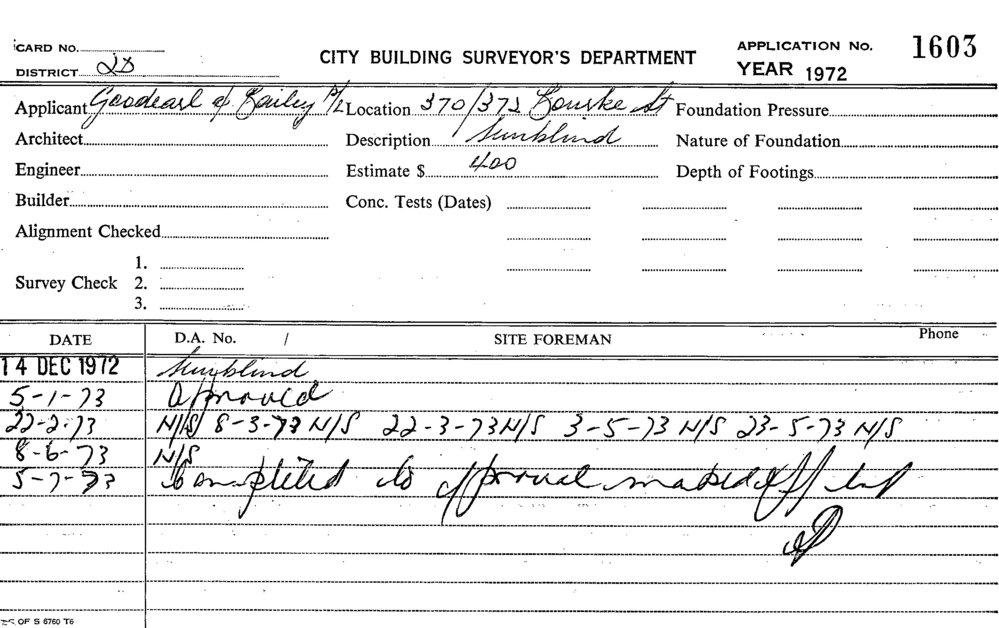 CARD No.
DISTRICT 2D
CITY BUILDING SURVEYOR'S DEPARTMENT
APPLICATION No. 1603
YEAR 1972
Applicant Goodearl & Bailey P/L Location 370/372 Bourke St Foundation Pressure
Architect Description Sunblind Nature of Foundation
Engineer Estimate $ 400 Depth of Footings
Builder Conc. Tests (Dates)
Alignment Checked
1.
Survey Check 2.
3.
DATE D.A. No. / SITE FOREMAN Phone
14 DEC 1972 Sunblind
5-1-73 Approved
22-2-73 N/S 8-3-73 N/S 22-3-73 N/S 3-5-73 N/S 23-5-73 N/S
8-6-73 N/S
5-7-73 Completed to approval marked off
OF S 6760 T6